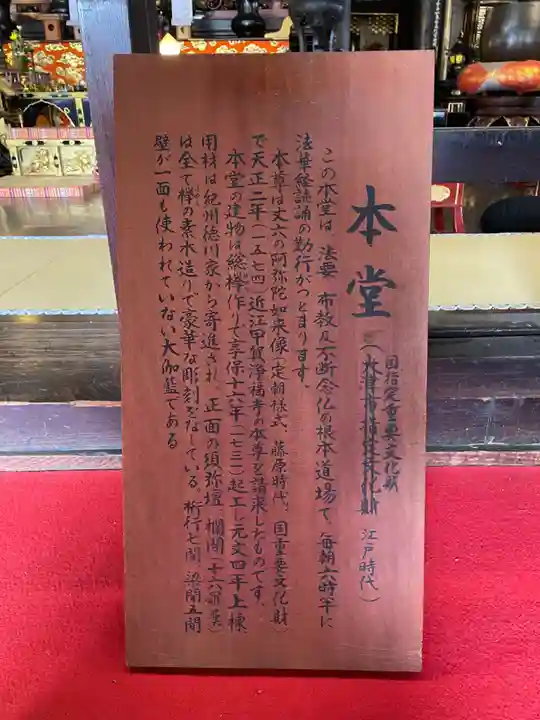 本堂
国指定重要文化財
(大津市指定文化財 江戸時代)
この本堂は、法要、布教及不断念仏の根本道場で、毎朝六時半に
法華経読誦の勤行がつとまります。
本尊は丈六の阿弥陀如来像(定朝様式、藤原時代、国重要文化財)
で天正二年(一五七四)近江甲賀浄福寺の本尊を請来したものです。
本堂の建物は総欅作りで享保十六年(一七三一)起工し元文四年上棟
用材は紀州徳川家から寄進され、正面の須弥壇、欄間(十六羅漢)
は全て欅の素木造りで豪華な彫刻をなしている 桁行七間、梁間五間
壁が一面も使われていない大伽藍である